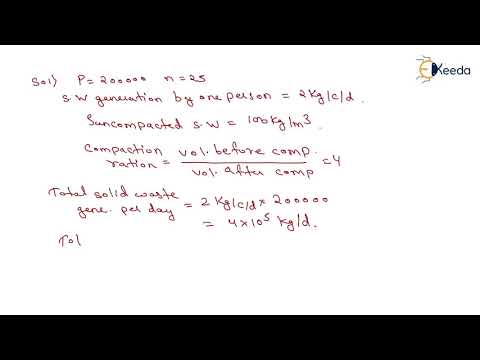 Keeda
Sol) P = 200000 n = 25
S.W generation by one person = 2 Kg/c/d.
ʃuncompacted s.w = 100 kg/m³.
Compaction ration = vol. before comp. / vol. after comp = 4
Total solid waste gene. per day = 2 Kg/c/d × 200000
= 4×10⁵ kg/d.
Tol